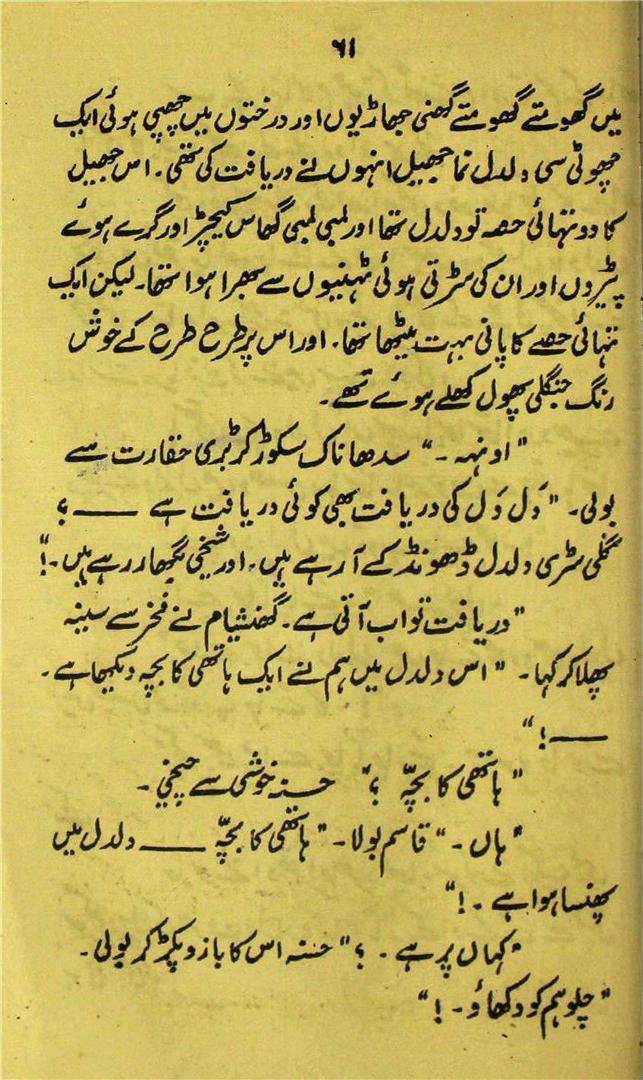 ۶۱
میں گھومتے گھومتے گھنی جھاڑیوں اور درختوں میں چھپی ہوئی ایک
چھوٹی سی دلدل نما جھیل انہوں نے دریافت کی تھی۔ اس جھیل
کا دو تہائی حصہ تو دلدل تھا اور لمبی لمبی گھاس کیچڑ اور گرے ہوئے
پیڑوں اور ان کی سڑتی ہوئی ٹہنیوں سے بھرا ہوا تھا۔ لیکن ایک
تہائی حصے کا پانی بہت میٹھا تھا۔ اور اس پر طرح طرح کے خوش
رنگ جنگلی پھول کھلے ہوئے تھے۔
"اونہہ۔" سدھا ناک سکوڑ کر بڑی حقارت سے
بولی۔ "دَل دَل کی دریافت بھی کوئی دریافت ہے ——؟
گلی سڑی دلدل ڈھونڈ کے آ رہے ہیں۔ اور شیخی بگھار رہے ہیں۔!"
"دریافت تو اب آتی ہے۔ گھنشیام نے فخر سے سینہ
پھلا کر کہا۔ "اس دلدل میں ہم نے ایک ہاتھی کا بچہ دیکھا ہے۔
——!"
"ہاتھی کا بچّہ ؟" حسنہ خوشی سے چیخی۔
"ہاں۔" قاسم بولا۔ "ہاتھی کا بچّہ —— دلدل میں
پھنسا ہوا ہے۔!"
"کہاں پر ہے۔ ؟" حسنہ اس کا بازو پکڑ کر بولی۔
"چلو ہم کو دکھاؤ۔!"